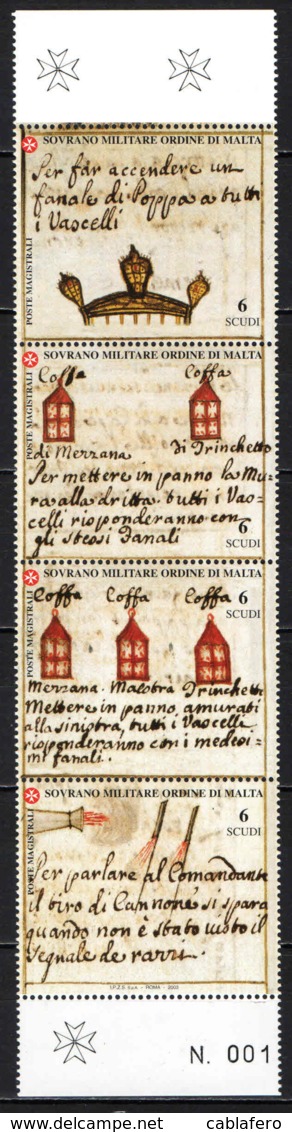 SOVRANO MILITARE ORDINE DI MALTA
Per far accendere un
fanale di Poppa a tutti
i Vascelli
POSTE MAGISTRALI
6
SCUDI
SOVRANO MILITARE ORDINE DI MALTA
POSTE MAGISTRALI
Coffa Coffa
di Mezzana di Trinchetto
Per mettere in panno la Mu-
ra alla dritta tutti i Vas-
celli risponderanno con
gli stessi fanali
6
SCUDI
SOVRANO MILITARE ORDINE DI MALTA
POSTE MAGISTRALI
Coffa Coffa Coffa
6
SCUDI
Mezzana. Maestra Trinchetti
Mettere in panno, amurati
alla sinistra, tutti i Vascelli
risponderanno con i medesi=
mi fanali.
SOVRANO MILITARE ORDINE DI MALTA
POSTE MAGISTRALI
6
SCUDI
Per parlare al Comandante
il tiro di Cannone si spara
quando non è stato visto il
segnale de razzi.
I.P.Z.S. S.p.A. - ROMA - 2003
N. 001
www.delcampe.net cablafero